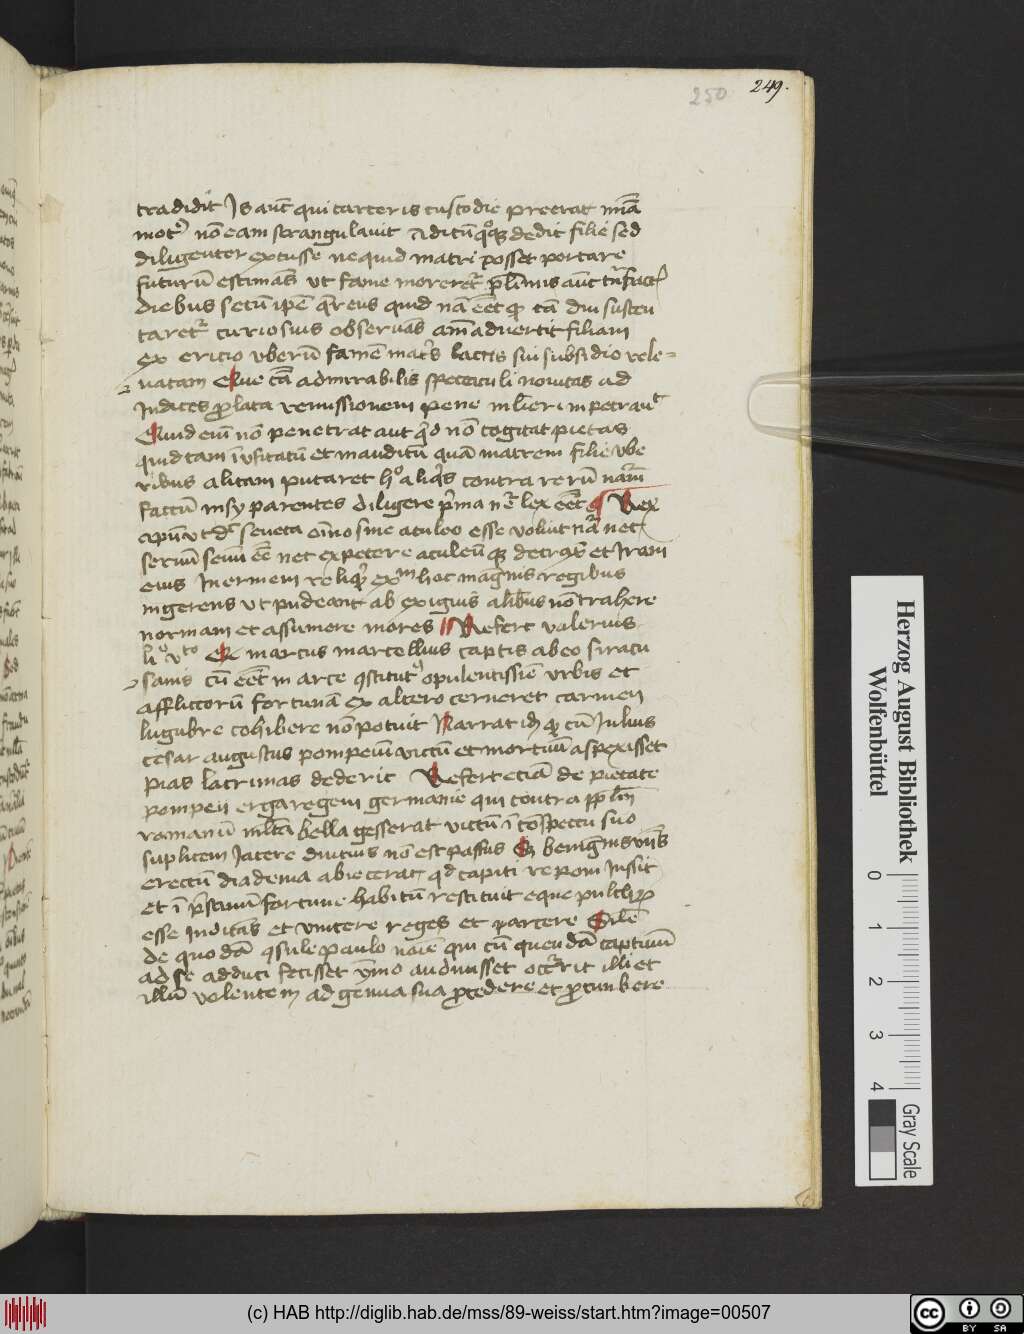 250 249.
tradidit Is aūt qui carceris custodie preerat mīa
motꝰ nō eam strangulavit aditū qͦꝗ dedit filie sed
diligenter excusse ne quid matri posset portare
futurū estimās vt fame morereťr pl̄imis aūt
diebus secū ip̄e q̄rens quid nā eēt ꝙ tā diu susten
taretᷣ curiosius observās aīmadvertit filiam
ex ericio vberū famē matris lactis sui subsidio rele-
vatam Que tā admirabilis spectaculi novitas ad
Judices ꝓlata remissionem pene mulieri impetravit
Quid enī nō penetrat aut qͥd nō cogitat pietas
quid tam īusitatū et inauditū quā matrem filie vbe
ribus alitam putaret hͦ aliqͥs contra rerū nāram
factū nisi parentes diligere pͥma nᷓe lex eēt ¶ Rex
apū vt dᷓ seneca oīno sine aculeo esse voluit nāᷓ nec
servū sevū eē nec expetere aculeū ꝙ detraxͥt et Iram
eius Inermem reliqͥt exᵐ hoc magnis regibus
ingerens vt pudeant ab exiguis alibus nō trahere
normam et assumere mores // Refert valerius
liͦ vᵗᵒ Q marcus marcellus captis ab eo siracu
sanis cū eēt in arce ꝯstitutꝰ opulentissiē vrbis et
afflictorū fortunā ex altero cerneret carmen
lugubre cohibere nō potuit Narrat id ꝙ cū Julius
cesar augustus pompeiū victū et mortuū aspexisset
pias lacrimas dederit Refert etiā de pietate
pompeii erga regem germanie qui contra ppl̄m
romanū ml̄ta bella gesserat victū ī cōspectu suo
suplicem Jacere diutius nō est passus Sꝫ benignis vͥbis
erectū diadema abiecerat qd capiti reponi Jussit
et ī pͥstinū fortune habitū restituit eque pulchrū
esse Juditās et vincere reges et parcere Silē
de quodā ꝯsule paulo noīe qui cū quendā captivū
ad se adduci fecisset ymo audivisset occͬrit illi et
illū volentem ad genua sua ꝓcedere et ꝓcumbere
Herzog August Bibliothek
Wolfenbüttel
0 1 2 3 4
Gray Scale
(c) HAB http://diglib.hab.de/mss/89-weiss/start.htm?image=00507
cc BY SA